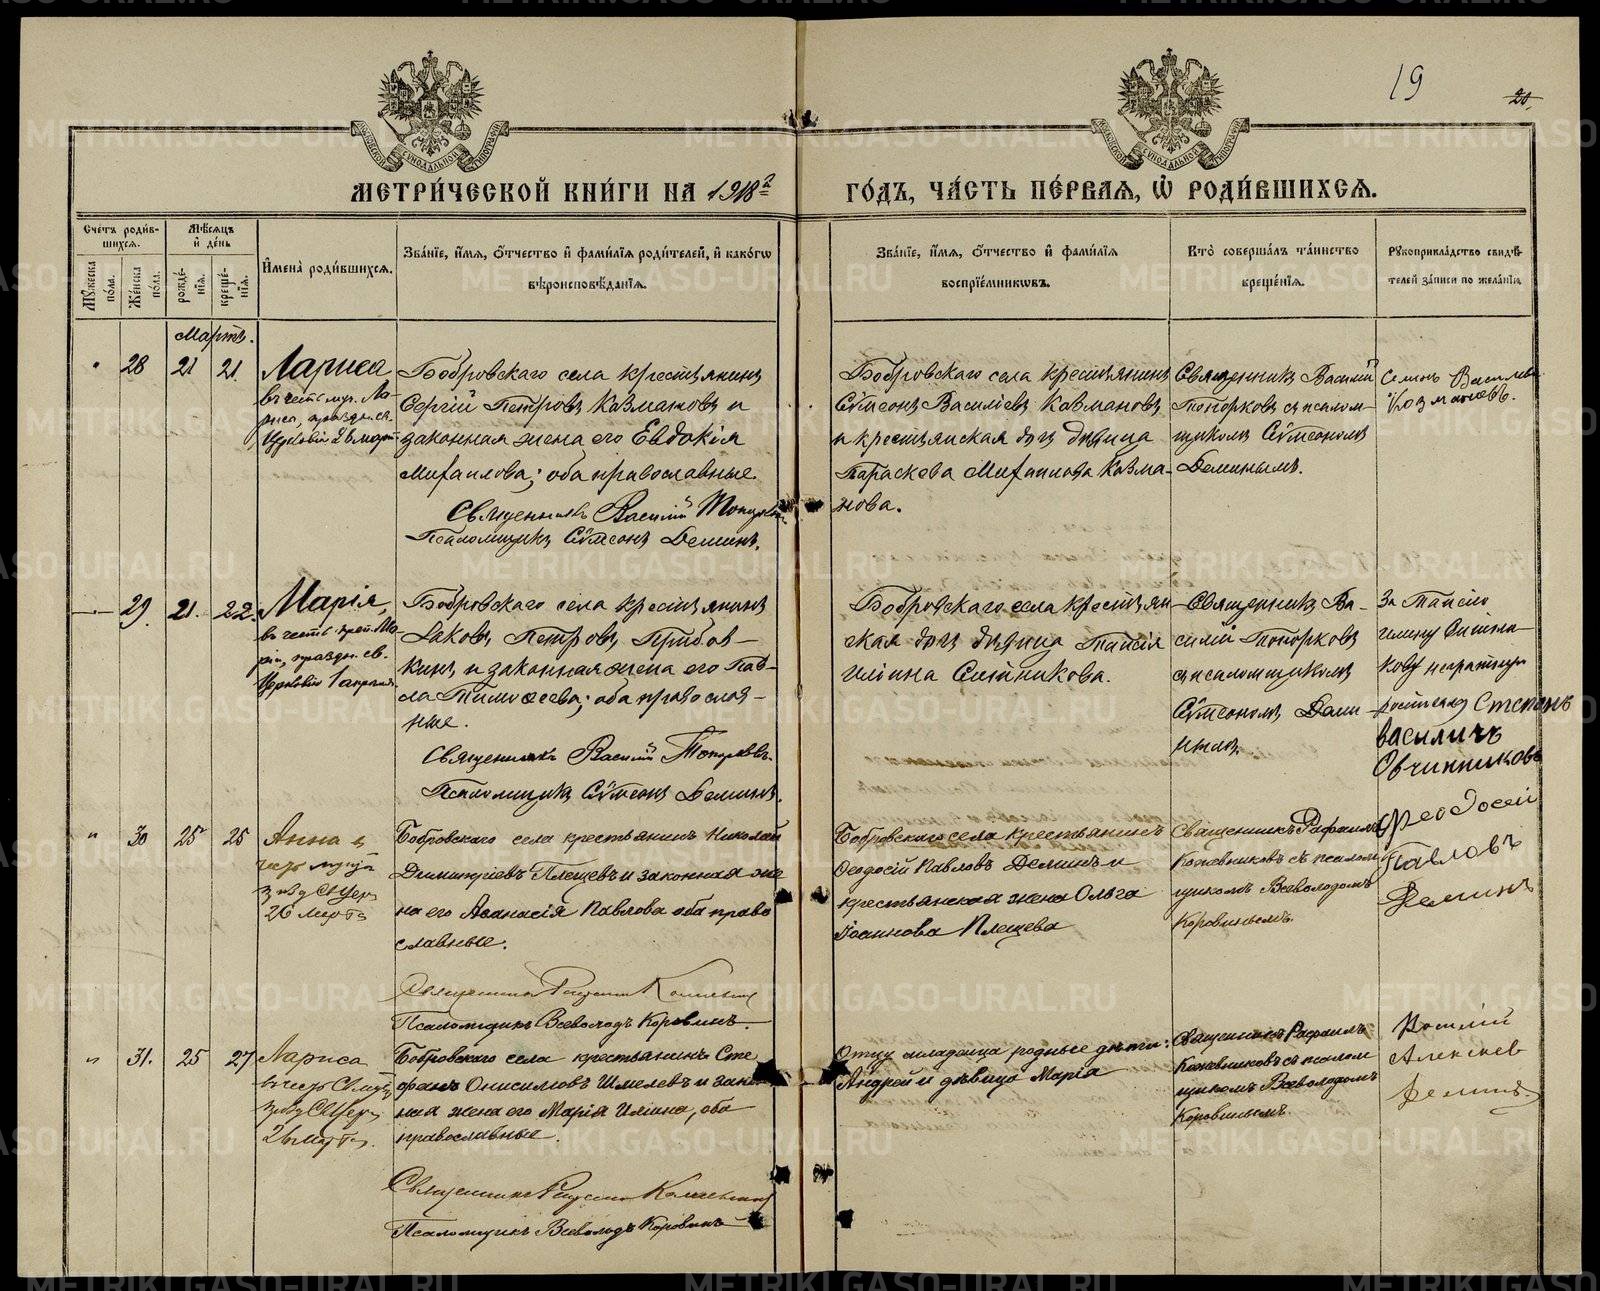 19
20
МЕТРИ́ЧЕСКОЙ КНИ́ГИ НА 1918 г
ГО́ДЪ, ЧА́СТЬ ПЕ́РВАЯ, Ѡ РОДИ́ВШИХСЯ.
Сче́тъ роди́в-
шихся.
Му́жеска
по́ла.
Же́нска
по́ла.
Мѣ́сяцъ
и де́нь
рожде́-
нія.
креще́-
нія.
Имена̀ роди́вшихся.
Зва́ніе, и́мя, о́тчество и фами́лія роди́телей, и како́гѡ
вѣроисповѣ́данія.
Зва́ніе, и́мя, о́тчество и фами́лія
воспріе́мниковъ.
Кто̀ соверша́лъ та́инство
креще́нія.
Рукоприкла́дство свидѣ́-
телей за́писи по жела́нію
Мартъ.
28 21 21
Лариса
въ честь муч. Ла-
рисы, празднуем.
Церковію 26 март.
Бобровскаго села крестьянинъ
Сергій Петровъ Казмановъ и
законная жена его Евдокія
Михаилова; оба православные.
Священникъ Василій Топорковъ.
Псаломщикъ Сѵмеонъ Деминъ.
Бобровскаго села крестьянинъ
Сѵмеонъ Василіевъ Казмановъ
и крестьянская дочь дѣвица
Параскева Михаилова Казма-
нова.
Священникъ Василій
Топорковъ съ псалом-
щикомъ Сѵмеономъ
Деминымъ.
Семенъ Василев
Козмановъ.
29. 21. 22.
Марія,
въ честь преп. Ма-
ріи, праздн. св.
Церковію 1 апрѣля
Бобровскаго села крестьянинъ
Іаковъ Петровъ Прибов-
кинъ и законная жена его Пав-
ла Тимоѳеева; оба православ-
ные.
Священникъ Василій Топорковъ.
Псаломщикъ Сѵмеонъ Деминъ.
Бобровскаго села крестьян-
ская дочь дѣвица Таисія
Иліина Ситникова.
Священникъ Ва-
силій Топорковъ
съ псаломщикомъ
Сѵмеономъ Деми-
нымъ.
За Таисію
Илину Ситни-
кову неграмотную
росписался Степанъ
Василичъ
Овчинниковъ
30 25 25
Анна въ
честь муч.
26 марта
Бобровскаго села крестьянинъ Николай
Димитріевъ Плещевъ и законная же
на его Аѳанасія Павлова оба право
славные.
Псаломщикъ Всеволодъ Коровинъ.
Бобровскаго села крестьянинъ
Ѳеодосій Павловъ Деминъ и
крестьянская жена Ольга
Іоаннова Плещева
Священникъ Рафаилъ
Кожевниковъ съ псалом
щикомъ Всеволодомъ
Коровинымъ.
Феодосей
Павловъ
Деминъ
31. 25 27
Лариса
26 марта
Бобровскаго села крестьянинъ Сте
фанъ Онисимовъ Шмелевъ и закон
ная жена его Марія Иліина, оба
православные.
Псаломщикъ Всеволодъ Коровинъ
Отцу младенца родные дѣти:
Андрей и дѣвица Марія
Священникъ Рафаилъ
Кожевниковъ съ псалом
щикомъ Всеволодомъ
Коровинымъ.
Василій
Алексеев
Деминъ.
METRIKI.GASO-URAL.RU